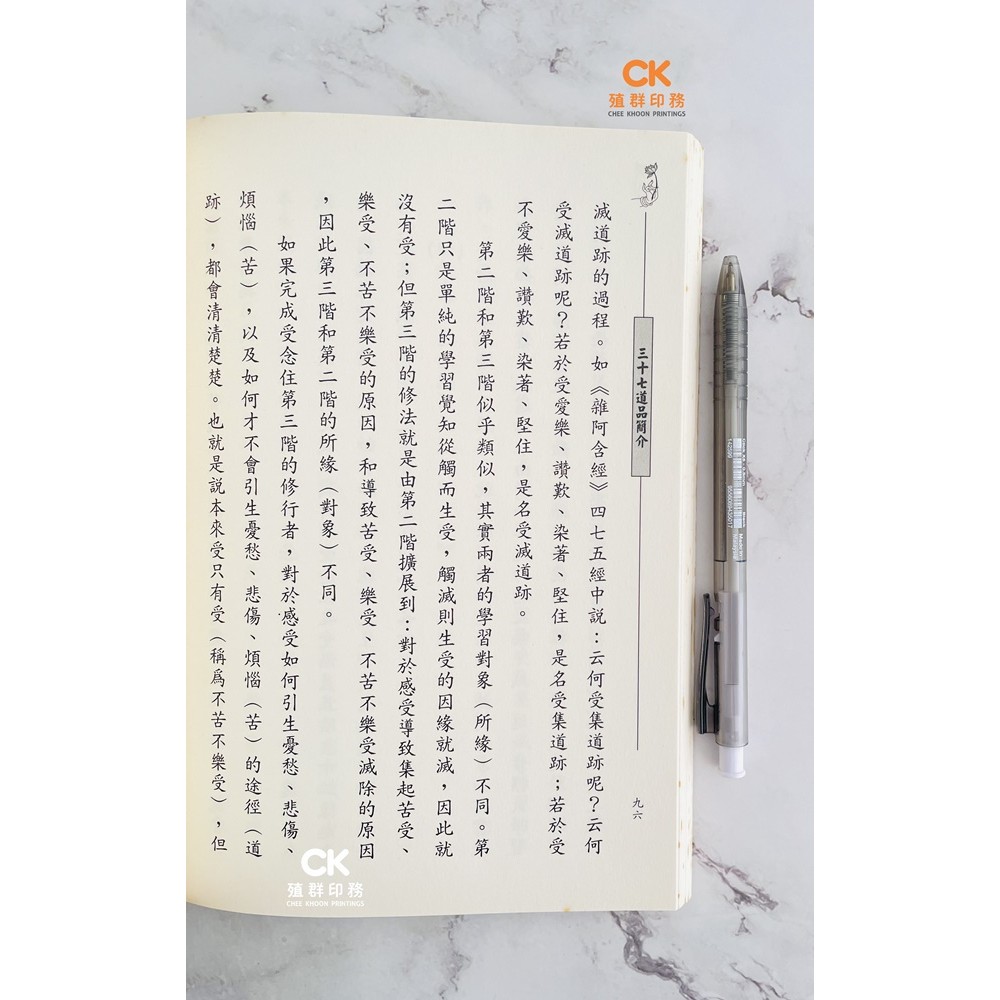 CK
殖群印務
CHEE KHOON PRINTINGS
三十七道品簡介
九六
滅道跡的過程。如《雜阿含經》四七五經中說：云何受集道跡呢？云何
受滅道跡呢？若於受愛樂、讚歎、染著、堅住，是名受集道跡；若於受
不愛樂、讚歎、染著、堅住，是名受滅道跡。
第二階和第三階似乎類似，其實兩者的學習對象（所緣）不同。第
二階只是單純的學習覺知從觸而生受，觸滅則生受的因緣就滅，因此就
沒有受；但第三階的修法就是由第二階擴展到：對於感受導致集起苦受、
樂受、不苦不樂受的原因，和導致苦受、樂受、不苦不樂受滅除的原因
，因此第三階和第二階的所緣（對象）不同。
如果完成受念住第三階的修行者，對於感受如何引生憂愁、悲傷、
煩惱（苦），以及如何才不會引生憂愁、悲傷、煩惱（苦）的途徑（道
跡），都會清清楚楚。也就是說本來受只有受（稱爲不苦不樂受），但
CK
殖群印務
CHEE KHOON PRINTINGS